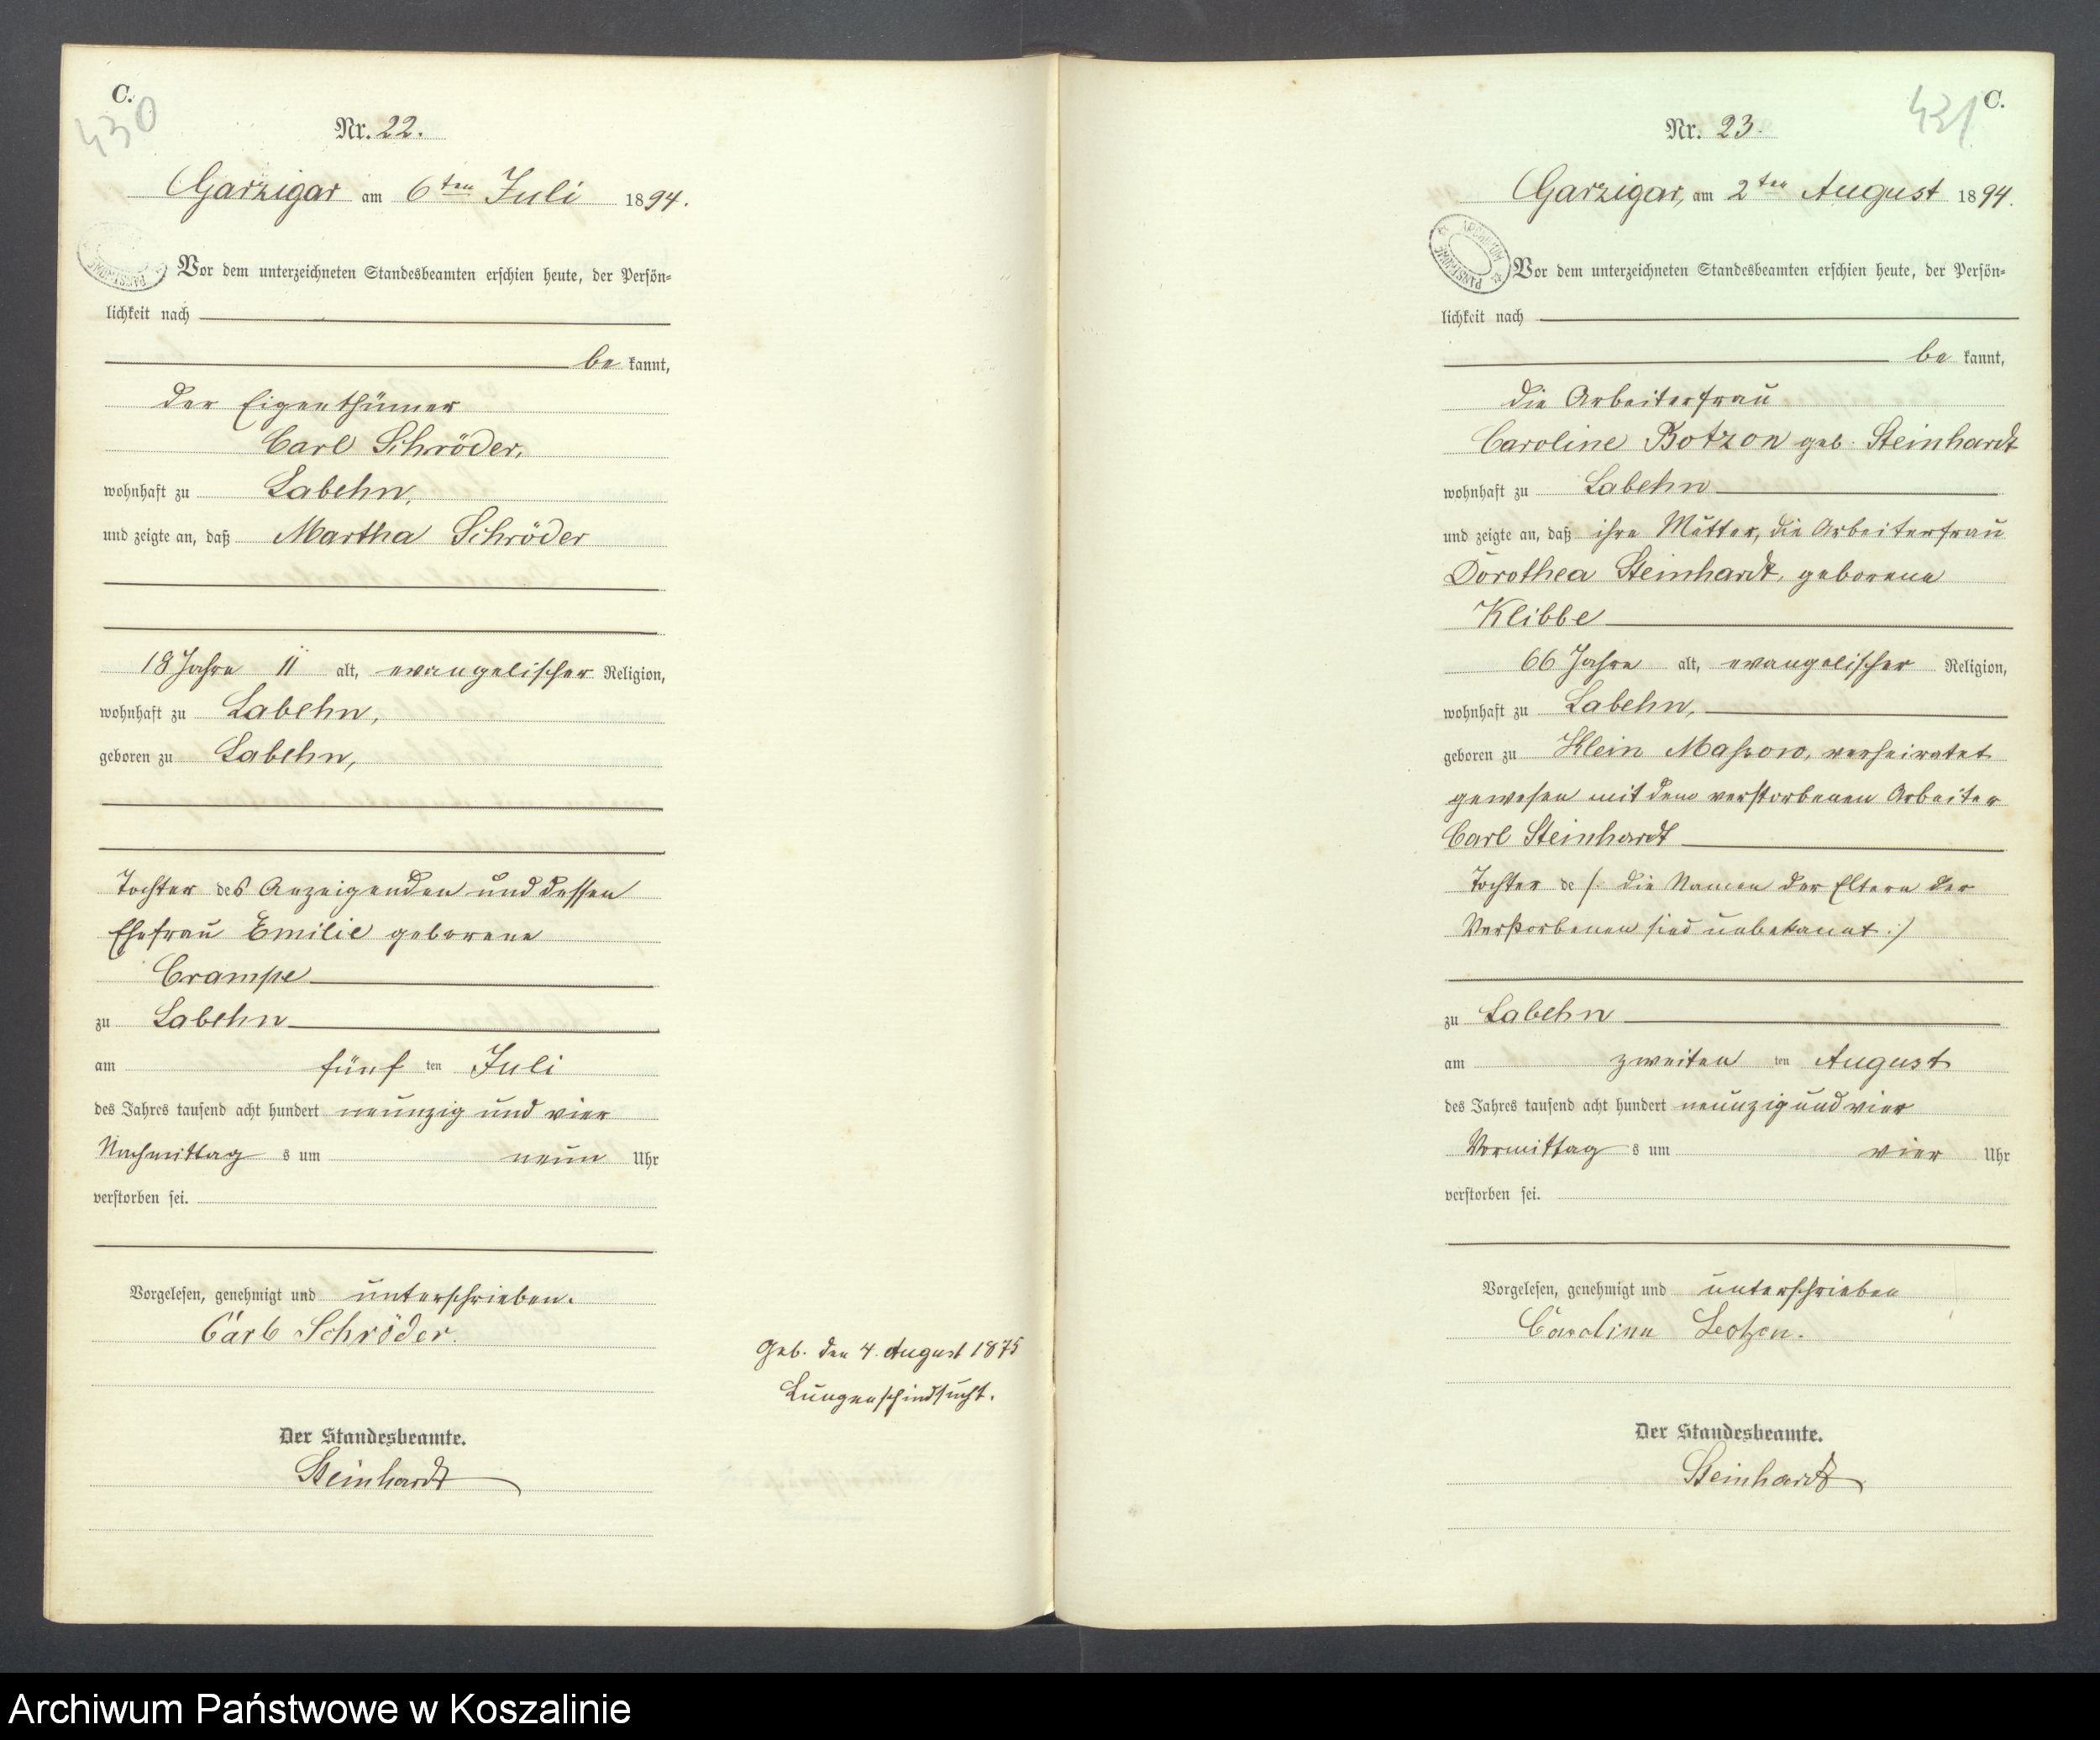 C.
430
Nr. 22.
Garzigar am 6ten Juli 1894.
Vor dem unterzeichneten Standesbeamten erschien heute, der Persön-
lichkeit nach
be kannt,
der Eigenthümer
Carl Schröder,
wohnhaft zu Labehn,
und zeigte an, daß Martha Schröder
18 Jahre 11 alt, evangelischer Religion,
wohnhaft zu Labehn,
geboren zu Labehn,
Tochter des Anzeigenden und dessen
Ehefrau Emilie geborene
Crampe
zu Labehn
am fünf ten Juli
des Jahres tausend acht hundert neunzig und vier
Nachmittag s um neun Uhr
verstorben sei.
Vorgelesen, genehmigt und unterschrieben.
Carl Schröder.
Geb. den 4. August 1875
Lungenschindsucht.
Der Standesbeamte.
Steinhardt
C.
431
Nr. 23.
Garzigar, am 2ten August 1894.
ARCHIWUM PAŃSTWOWE
Vor dem unterzeichneten Standesbeamten erschien heute, der Persön-
lichkeit nach
be kannt,
die Arbeiterfrau
Caroline Botzon geb. Steinhardt
wohnhaft zu Labehn
und zeigte an, daß ihre Mutter, die Arbeiterfrau
Dorothea Steinhardt, geborene
Klibbe
66 Jahre alt, evangelischer Religion,
wohnhaft zu Labehn,
geboren zu Klein Massow, verheiratet
gewesen mit dem verstorbenen Arbeiter
Carl Steinhardt
Tochter de /: die Namen der Eltern der
Verstorbenen sind unbekannt :/
zu Labehn
am zweiten ten August
des Jahres tausend acht hundert neunzig und vier
Vormittag s um vier Uhr
verstorben sei.
Vorgelesen, genehmigt und unterschrieben
Caroline
Der Standesbeamte.
Steinhardt
Archiwum Państwowe w Koszalinie